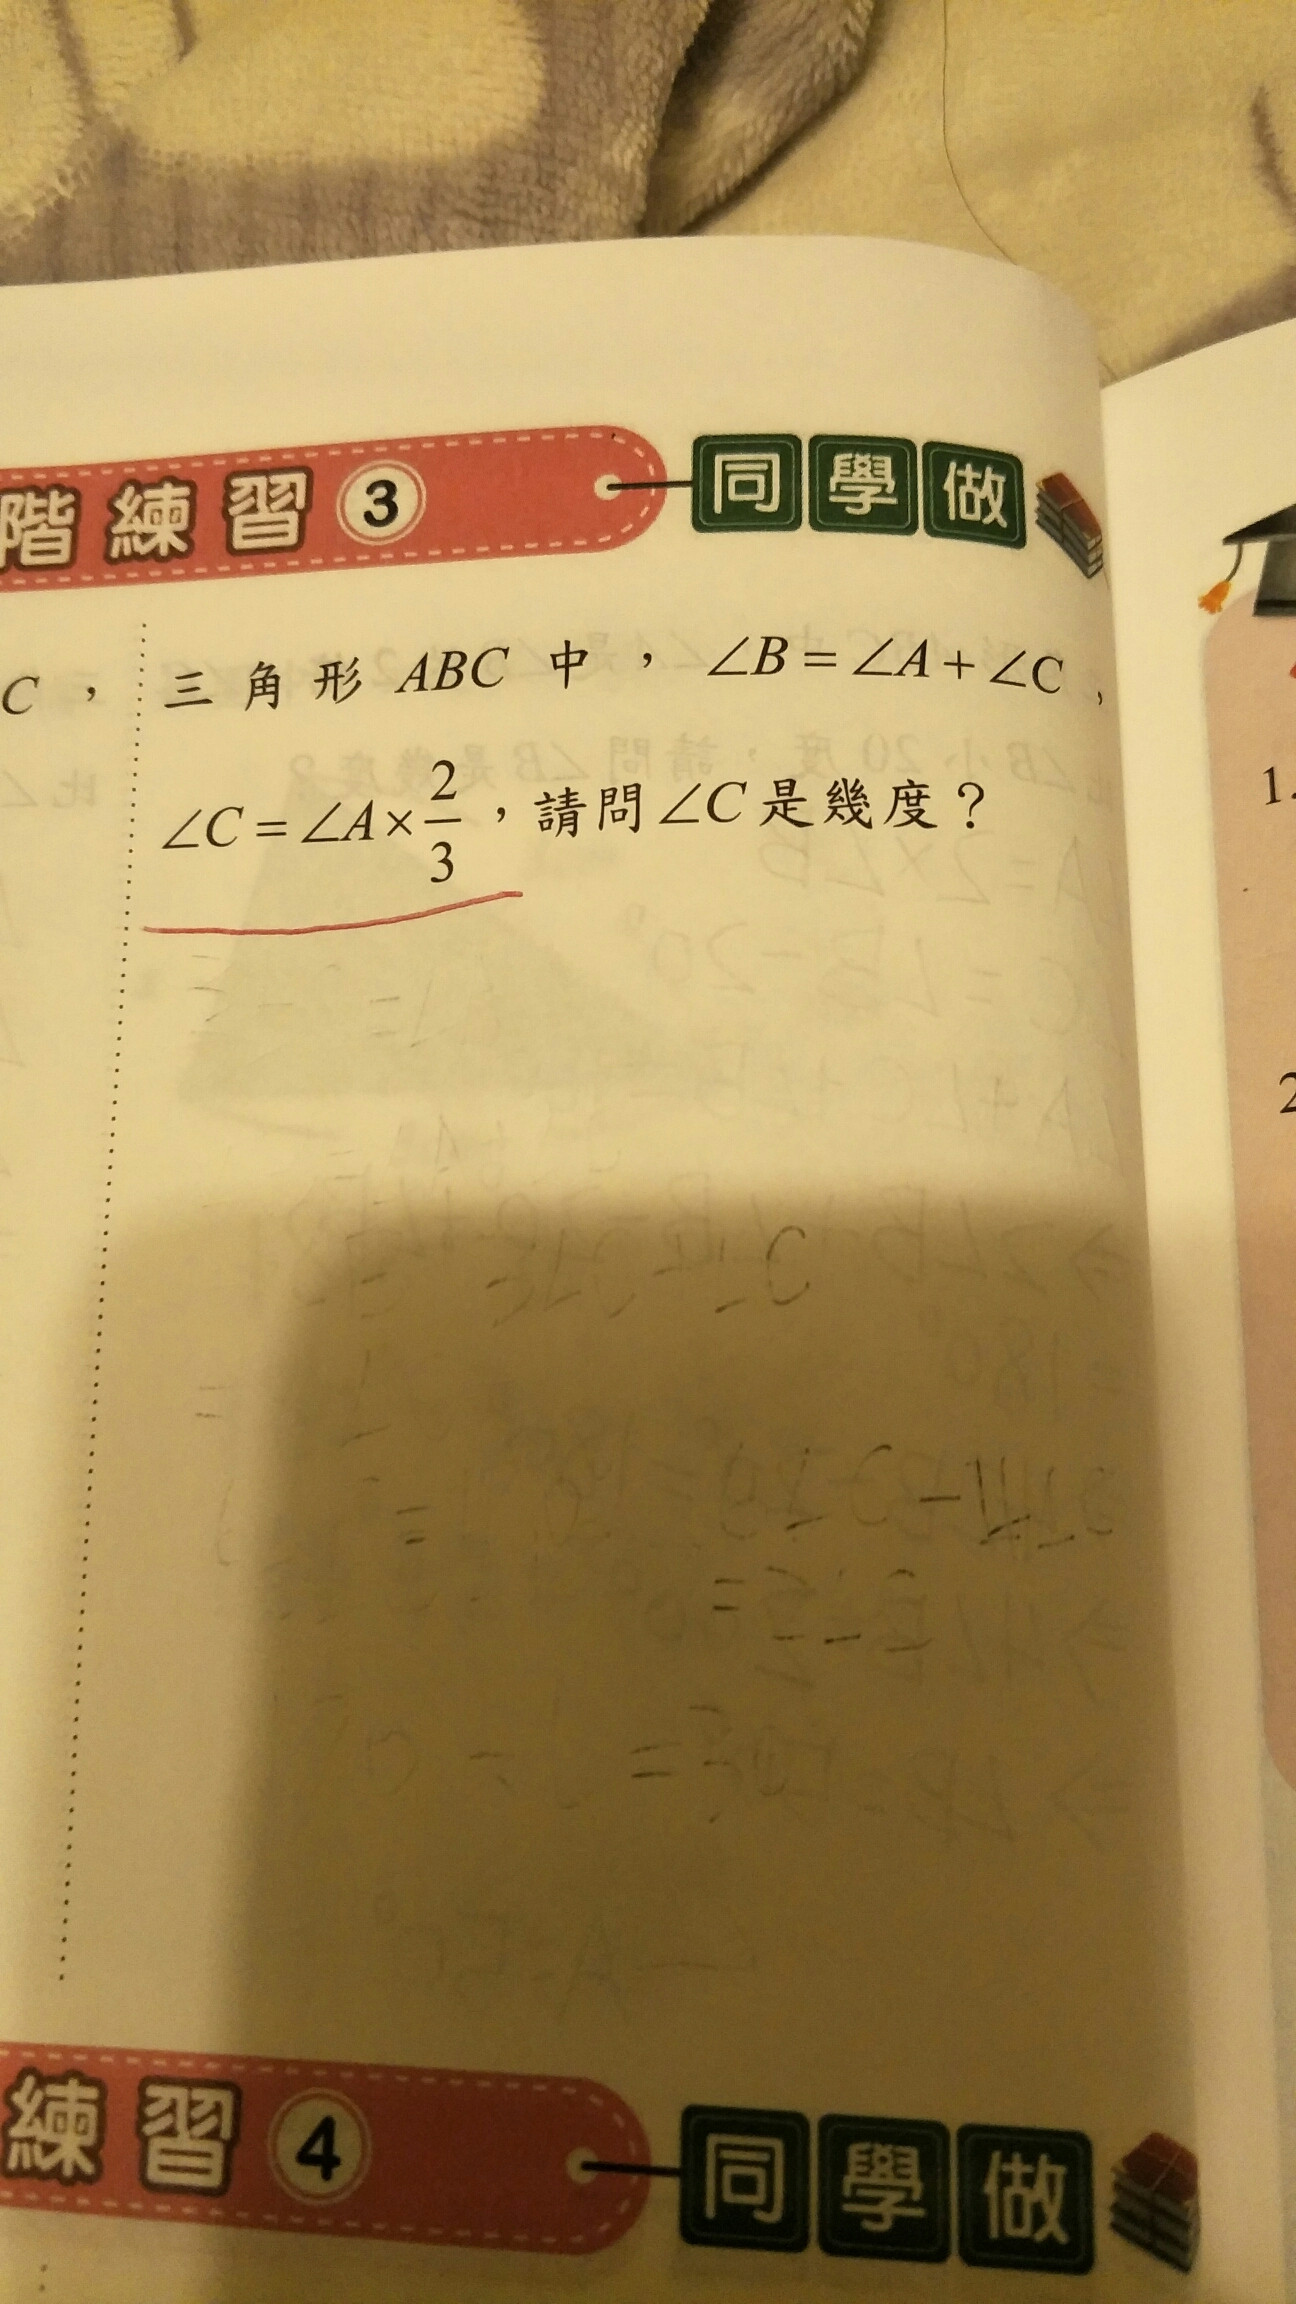 階練習 3 同學做
C， 三角形 ABC 中，∠B = ∠A + ∠C，
∠C = ∠A × 2/3，請問∠C 是幾度？
1.
2
練習 4 同學做